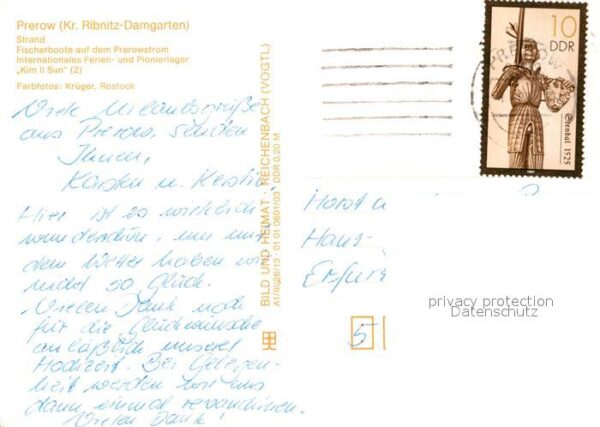 Prerow (Kr. Ribnitz-Damgarten)
Strand
Fischerboote auf dem Prerowstrom
Internationales Ferien- und Pionierlager
„Kim Il Sun" (2)
Farbfotos: Krüger, Rostock
Viele Urlaubsgrüße
aus Prerow, senden
Ihnen,
Karsten u. Kerstin
Hier ist es wirklich
wunderschön, nur mit
dem Wetter haben wir
nicht so Glück.
Vielen Dank noch
für die Glückwünsche
anläßlich unserer
Hochzeit. Bei Gelegen-
heit werden wir uns
dann einmal revanchieren.
Vielen Dank!
BILD UND HEIMAT REICHENBACH (VOGTL)
A1/III/26/13 01 01 0601/03 DDR 0,20 M
10
DDR
Stenbal 1525
PREROW
Horst
Hans-
Erfurt
privacy protection
Datenschutz
5